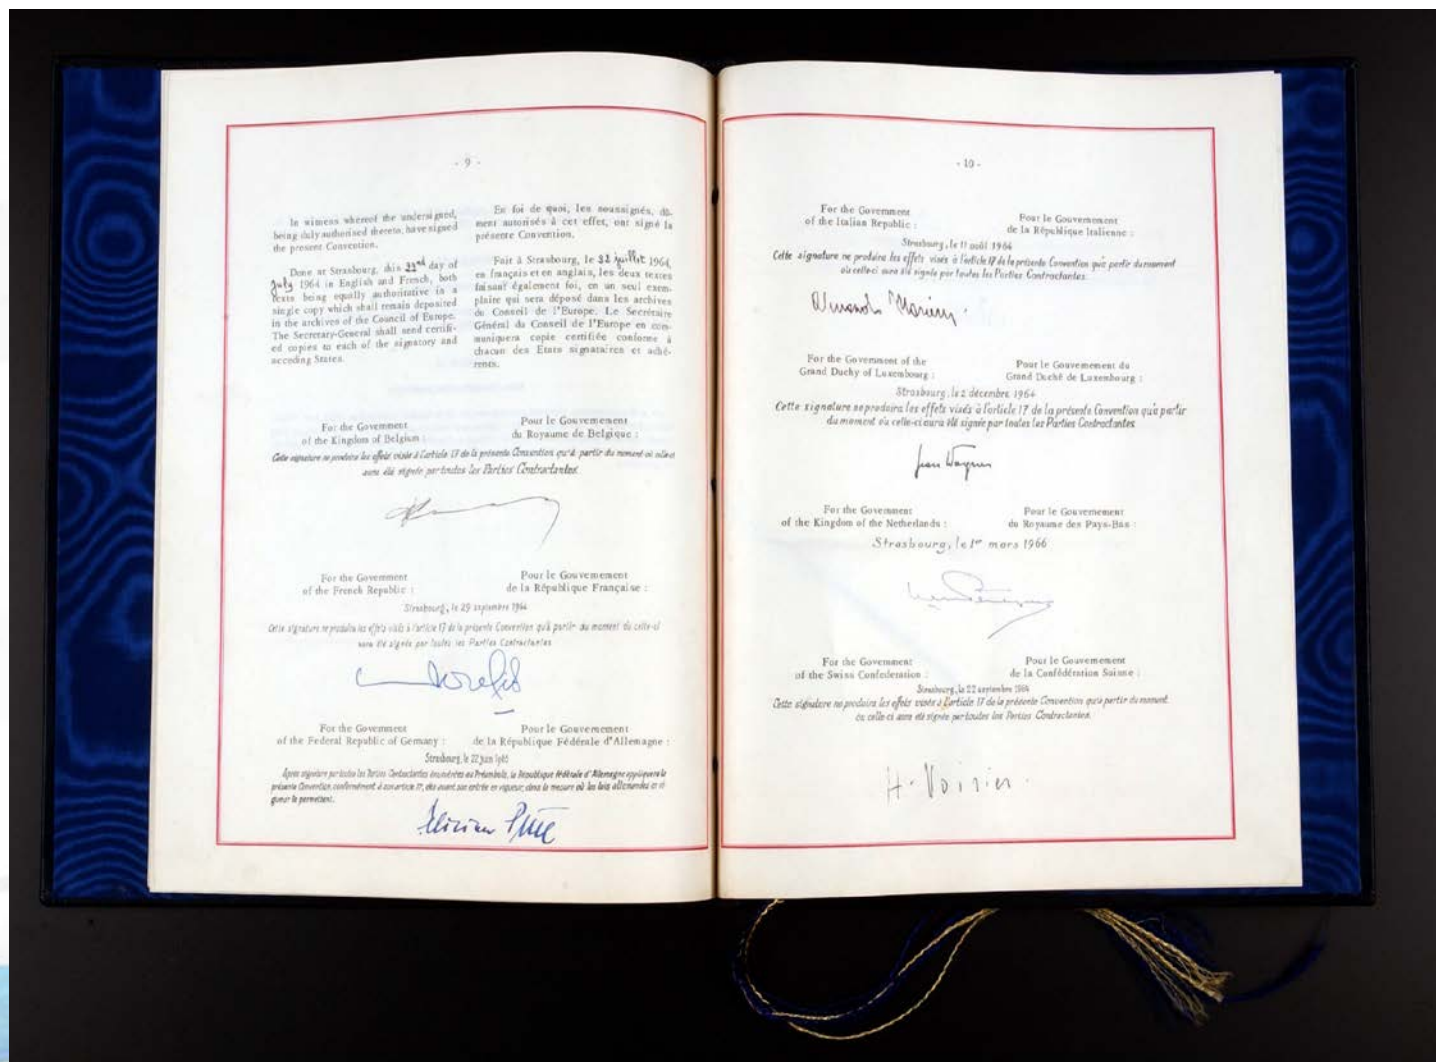 - 9 -
In witness whereof the undersigned,
being duly authorised thereto, have signed
the present Convention.
Done at Strasbourg, this 22nd day of
July 1964 in English and French, both
texts being equally authoritative in a
single copy which shall remain deposited
in the archives of the Council of Europe.
The Secretary-General shall send certifi-
ed copies to each of the signatory and
acceding States.
En foi de quoi, les soussignés, dû-
ment autorisés à cet effet, ont signé la
présente Convention.
Fait à Strasbourg, le 22 juillet 1964,
en français et en anglais, les deux textes
faisant également foi, en un seul exem-
plaire qui sera déposé dans les archives
du Conseil de l'Europe. Le Secrétaire
Général du Conseil de l'Europe en com-
muniquera copie certifiée conforme à
chacun des Etats signataires et adhé-
rents.
For the Government
of the Kingdom of Belgium :
Pour le Gouvernement
du Royaume de Belgique :
Cette signature ne produira les effets visés à l'article 17 de la présente Convention qu'à partir du moment où celle-ci
aura été signée par toutes les Parties Contractantes.
For the Government
of the French Republic :
Pour le Gouvernement
de la République Française :
Strasbourg, le 29 septembre 1964
Cette signature ne produira les effets visés à l'article 17 de la présente Convention qu'à partir du moment où celle-ci
aura été signée par toutes les Parties Contractantes
For the Government
of the Federal Republic of Germany :
Pour le Gouvernement
de la République Fédérale d'Allemagne :
Strasbourg, le 22 juin 1965
Après signature par toutes les Parties Contractantes énumérées au Préambule, la République Fédérale d'Allemagne appliquera la
présente Convention, conformément à son article 17, dès avant son entrée en vigueur, dans la mesure où les lois allemandes en vi-
gueur le permettent.
- 10 -
For the Government
of the Italian Republic :
Pour le Gouvernement
de la République Italienne :
Strasbourg, le 11 août 1964
Cette signature ne produira les effets visés à l'article 17 de la présente Convention qu'à partir du moment
où celle-ci aura été signée par toutes les Parties Contractantes.
For the Government of the
Grand Duchy of Luxembourg :
Pour le Gouvernement du
Grand Duché de Luxembourg :
Strasbourg, le 2 décembre 1964
Cette signature ne produira les effets visés à l'article 17 de la présente Convention qu'à partir
du moment où celle-ci aura été signée par toutes les Parties Contractantes
Jean Wagner
For the Government
of the Kingdom of the Netherlands :
Pour le Gouvernement
du Royaume des Pays-Bas :
Strasbourg, le 1er mars 1966
For the Government
of the Swiss Confederation :
Pour le Gouvernement
de la Confédération Suisse :
Strasbourg, le 22 septembre 1964
Cette signature ne produira les effets visés à l'article 17 de la présente Convention qu'à partir du moment
où celle-ci aura été signée par toutes les Parties Contractantes.
H. Voirier.